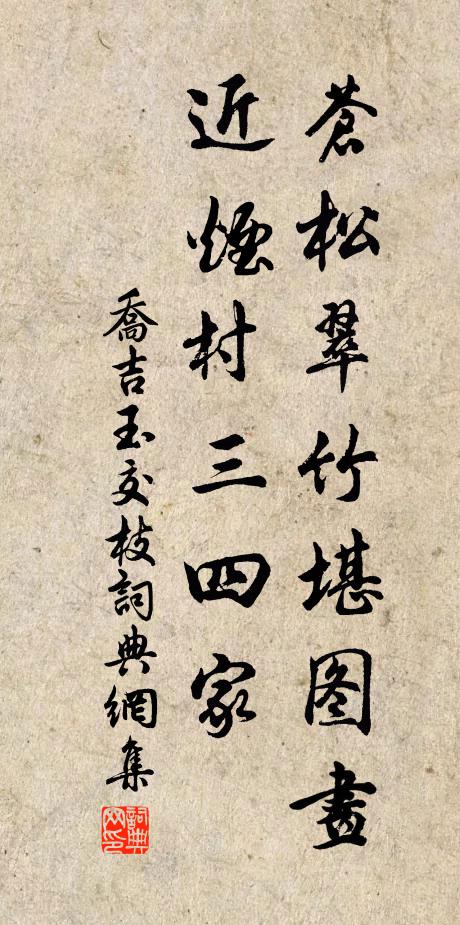 蒼松翠竹堪图畫
近煙村三四家
喬吉玉交枝詞典網集
詞典网印